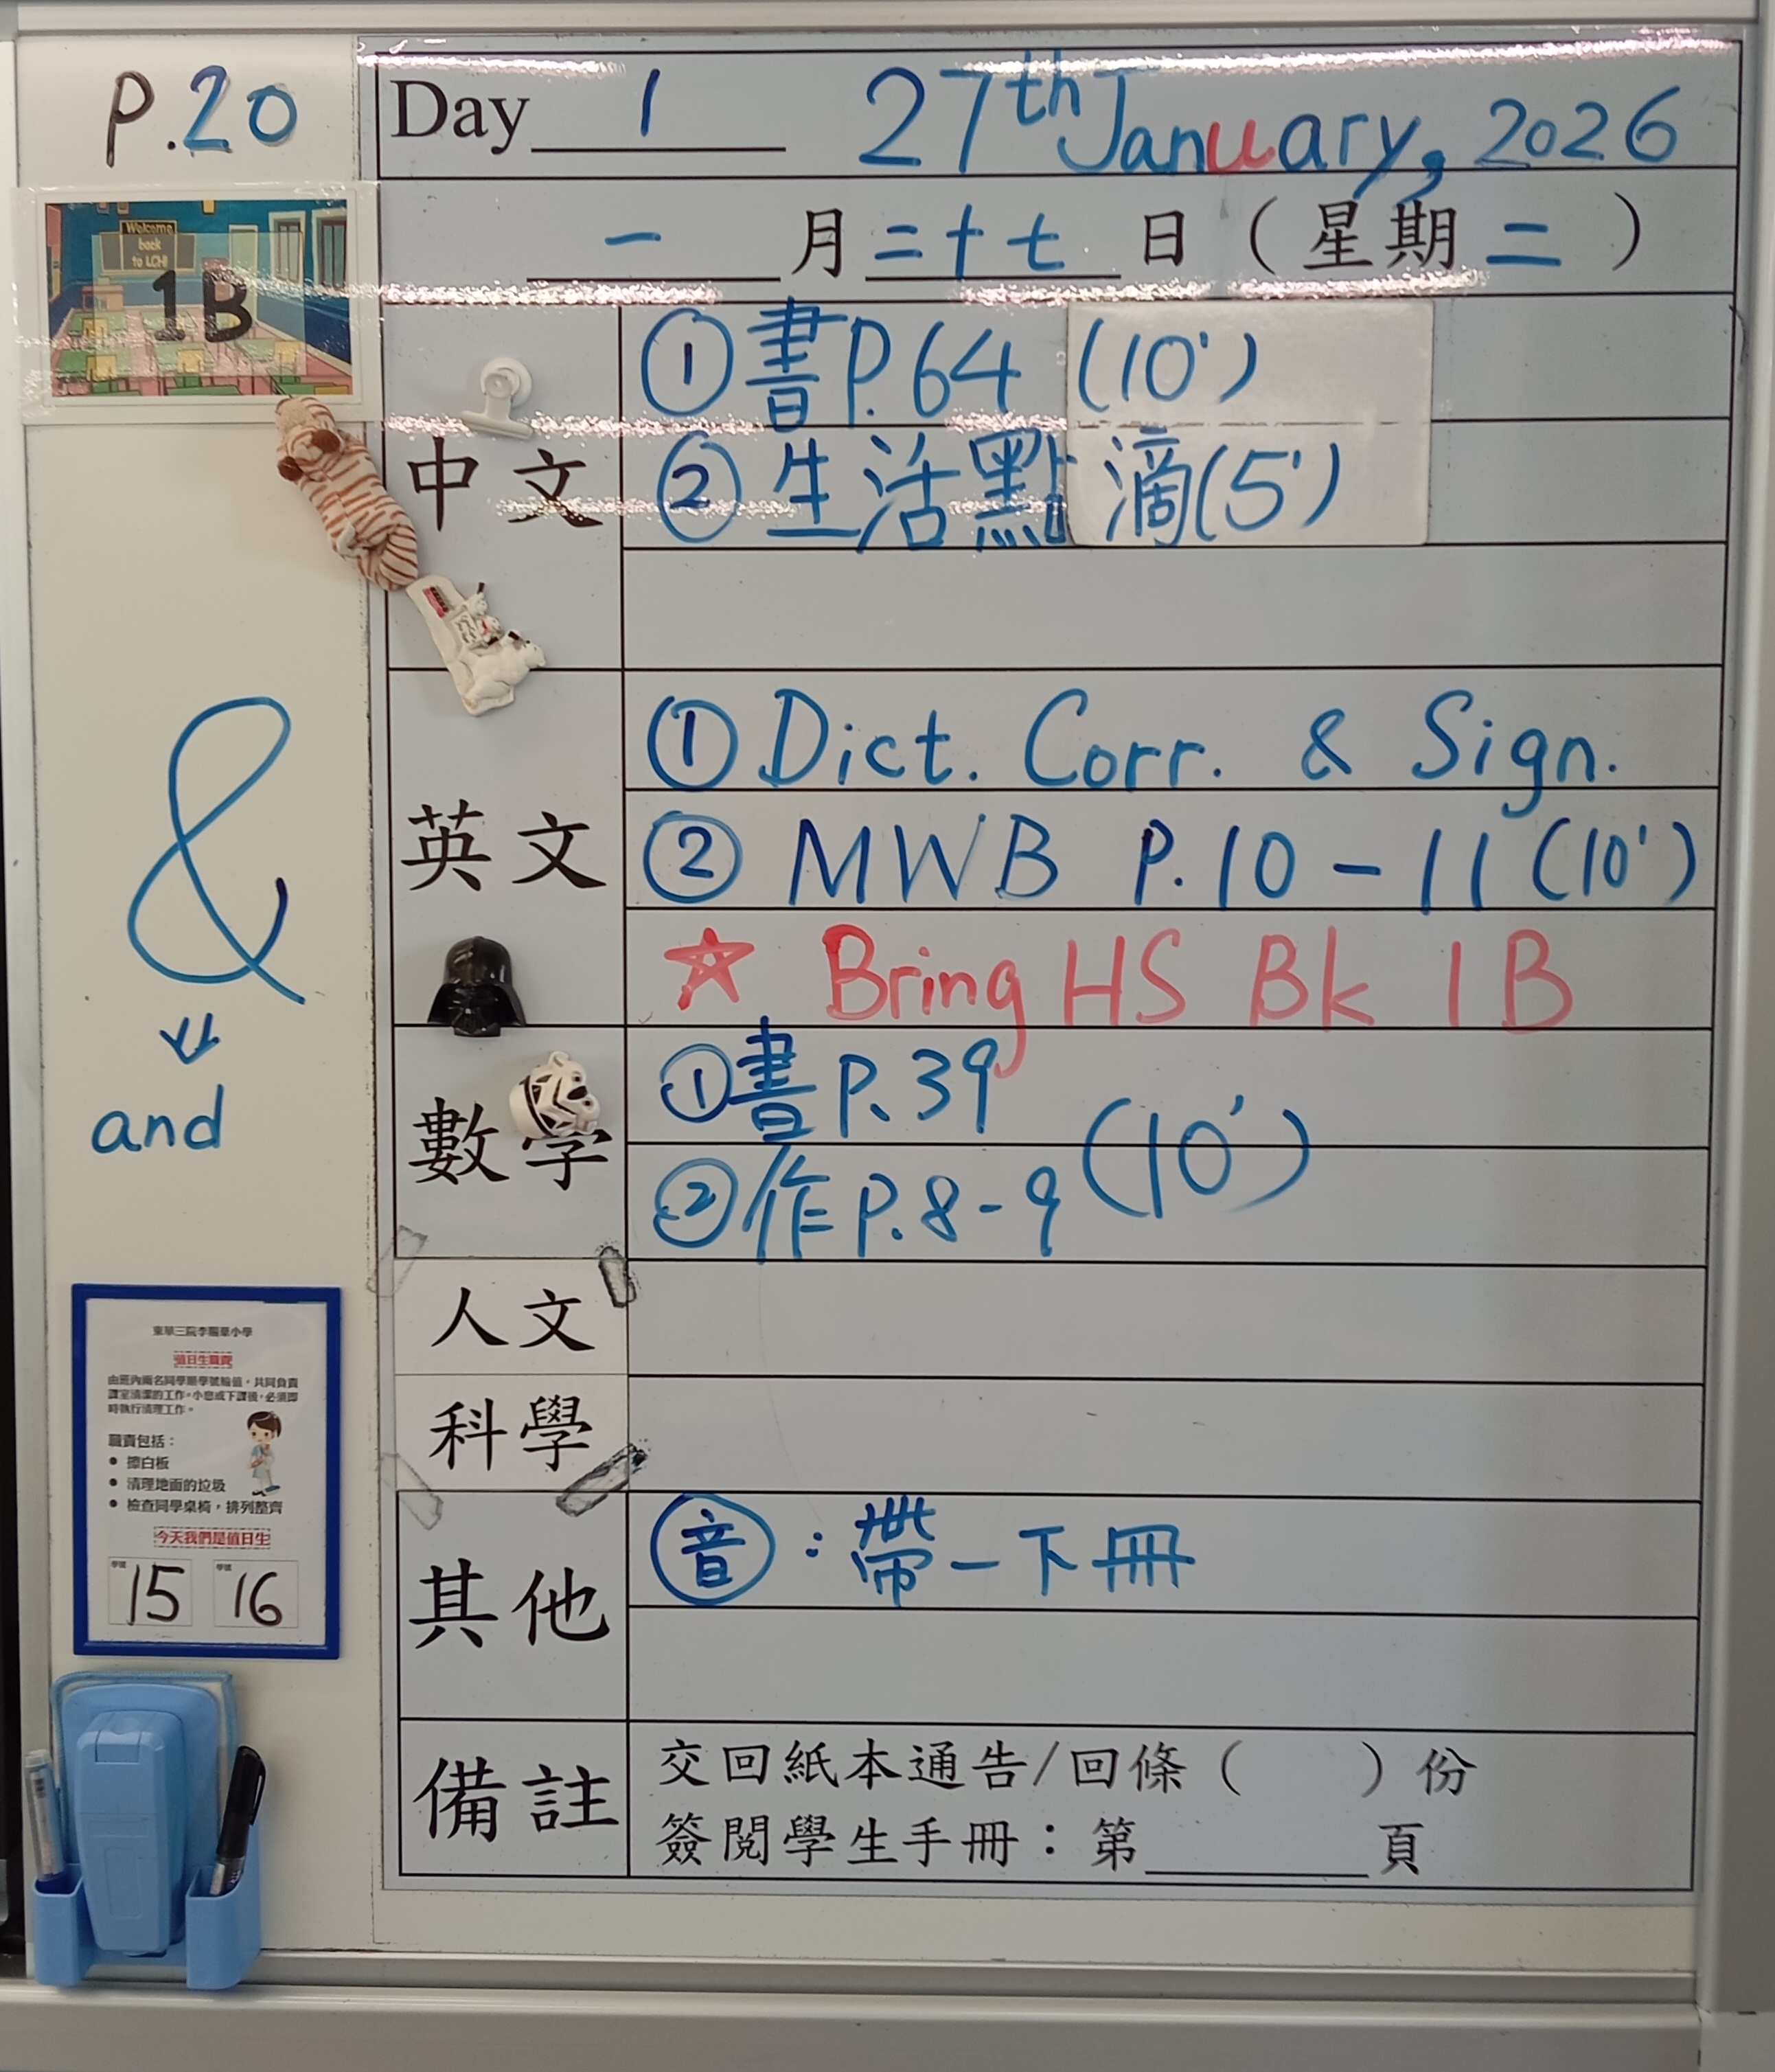 P.20
Day 1 27th January, 2026
一 月 二十七 日（星期 二 ）
Welcome
back
to LCH!
1B
中文
① 書 P.64 (10')
② 生活點滴 (5')
英文
① Dict. Corr. & Sign.
② MWB P.10 - 11 (10')
☆ Bring HS Bk 1B
數學
① 書 P.39
② 作 P.8-9 (10')
人文
科學
其他
音：帶一下冊
備註
交回紙本通告/回條（ ）份
簽閱學生手冊：第 頁
&
and
值日生職責
由班內兩名同學順學號輪值，共同負責
課室清潔的工作。小息或下課後，必須即
時執行清理工作。
職責包括：
● 擦白板
● 清理地面的垃圾
● 檢查同學桌椅，排列整齊
今天我們是值日生
學號 15 學號 16